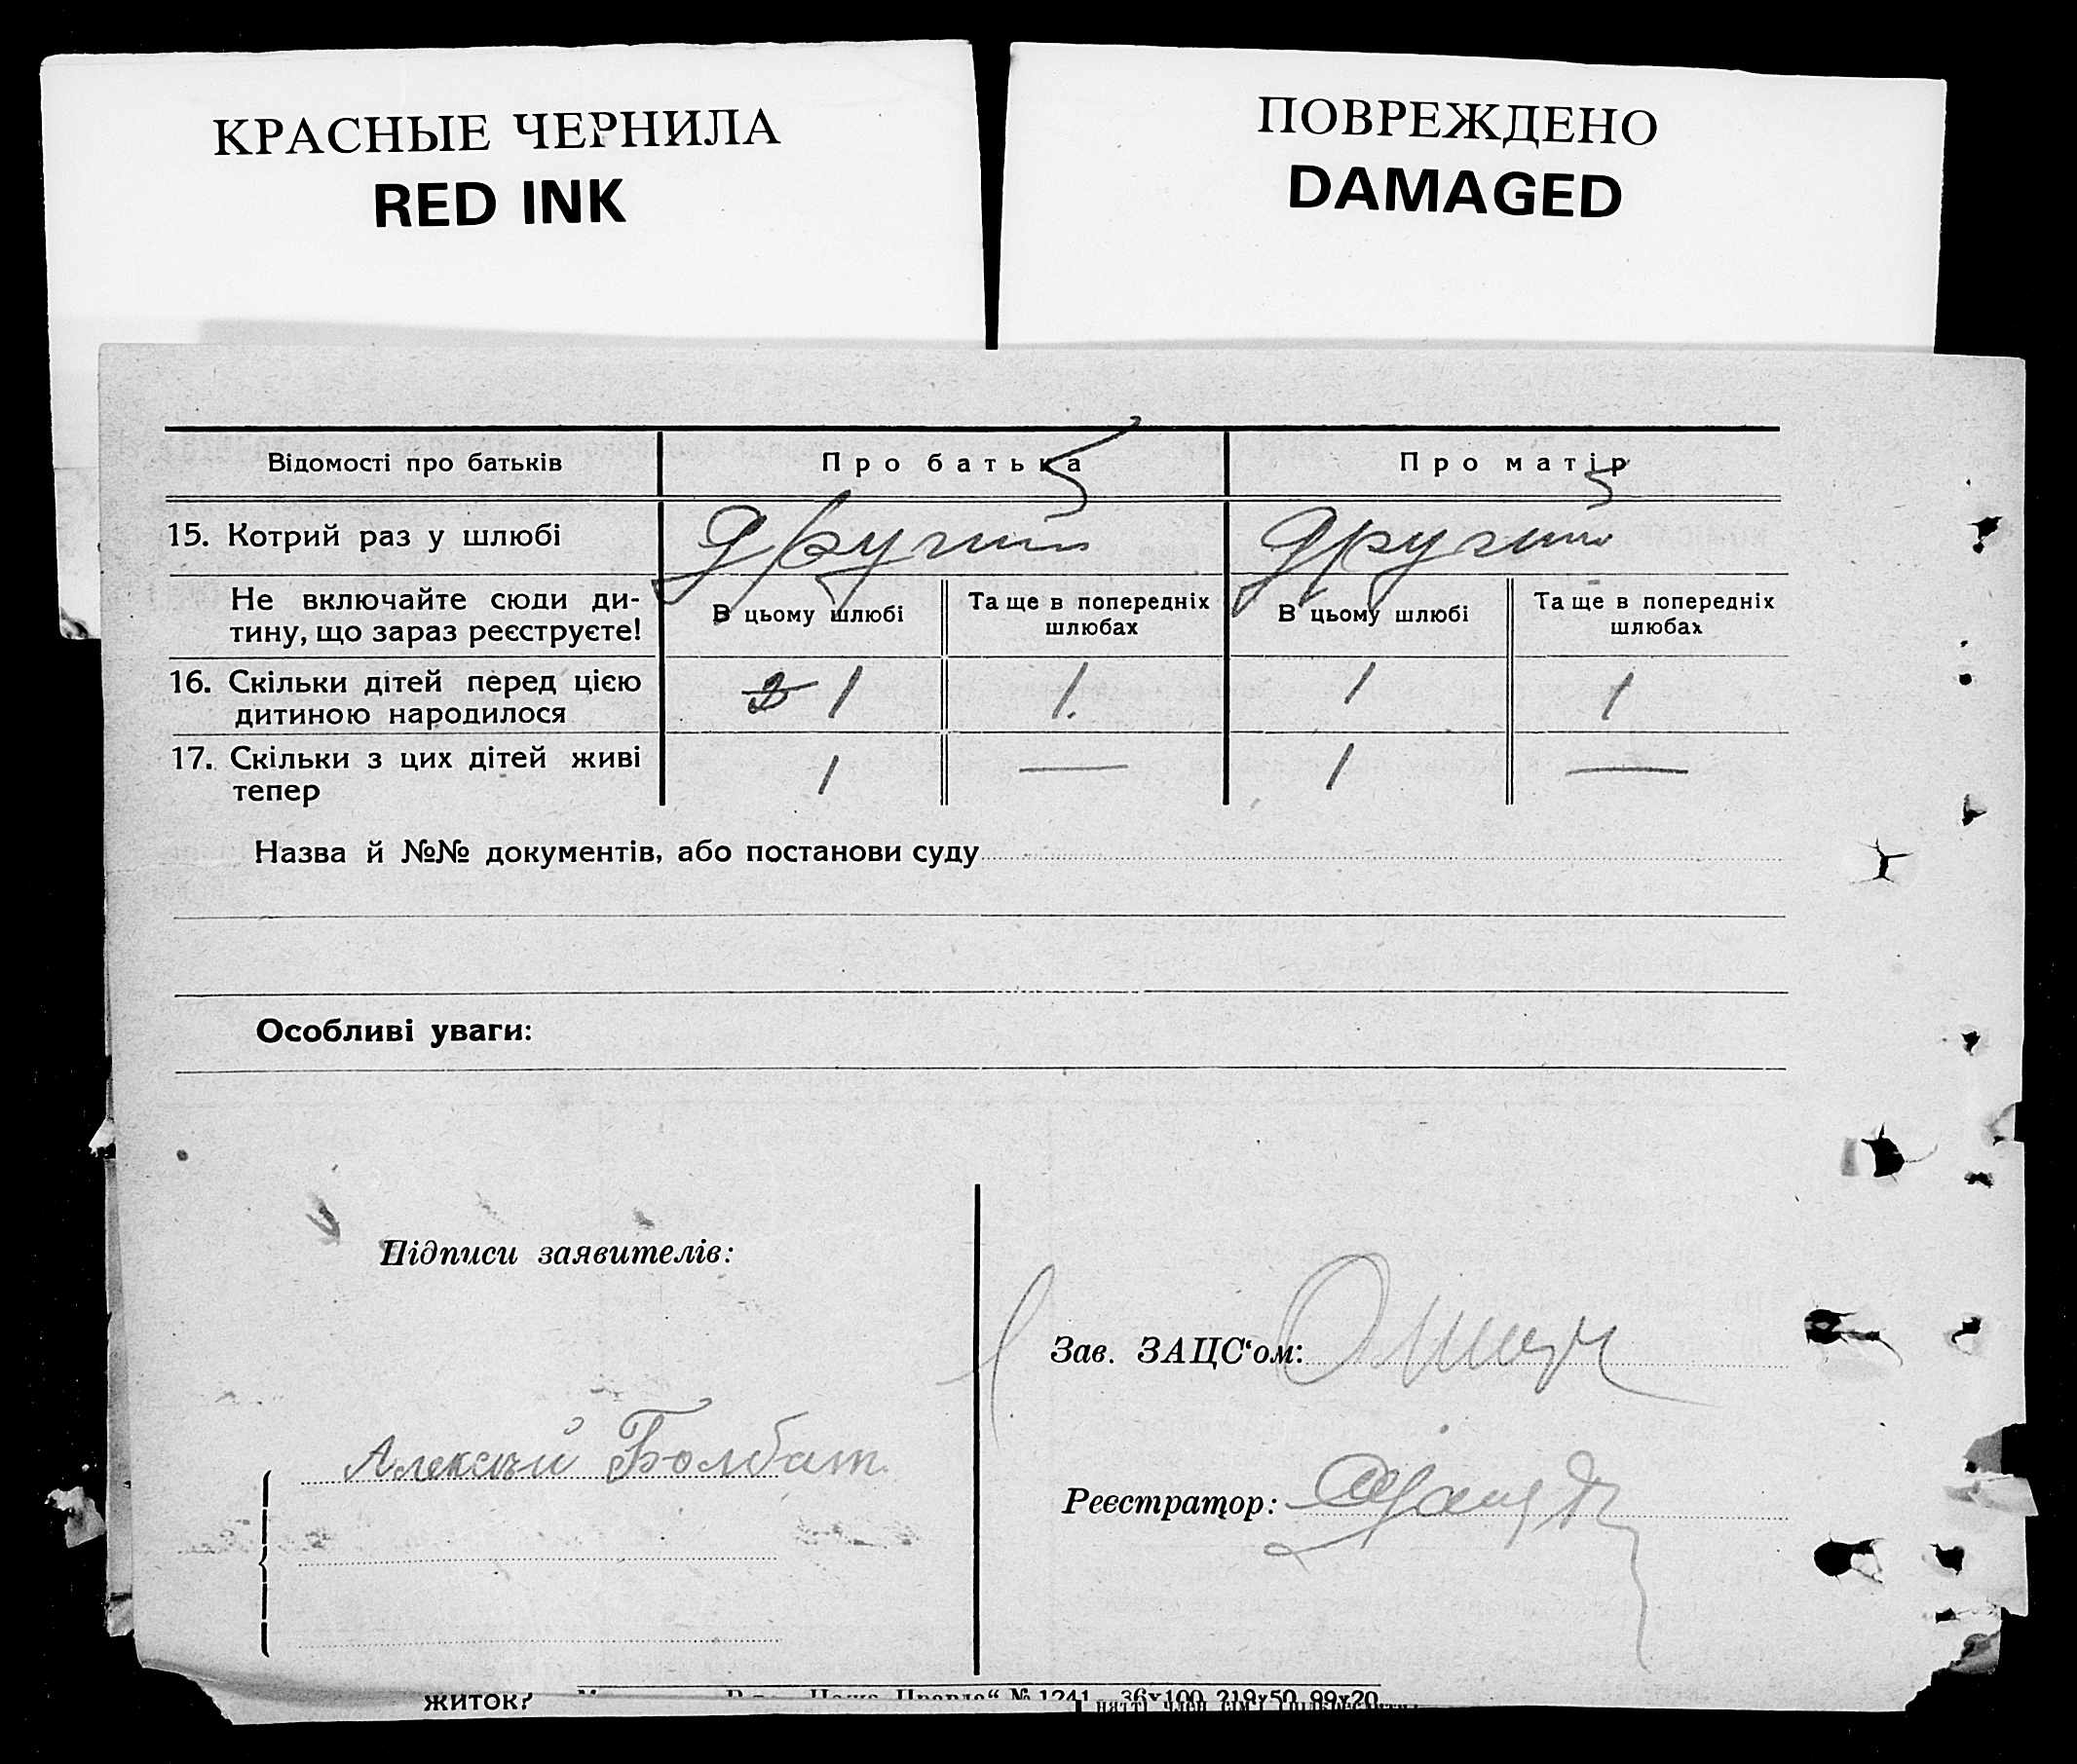 КРАСНЫЕ ЧЕРНИЛА
RED INK
ПОВРЕЖДЕНО
DAMAGED
Відомості про батьків
Про батька
Про матір
15. Котрий раз у шлюбі
другий
другий
Не включайте сюди ди-
тину, що зараз реєструєте!
В цьому шлюбі
Та ще в попередніх
шлюбах
В цьому шлюбі
Та ще в попередніх
шлюбах
16. Скільки дітей перед цією
дитиною народилося
2 1
1.
1
1
17. Скільки з цих дітей живі
тепер
1
—
1
—
Назва й №№ документів, або постанови суду
Особливі уваги:
Підписи заявителів:
Зав. ЗАЦС‘ом:
Алексѣй Болбат
Реєстратор:
житок?
Правда“ № 1241 36х100 219х50 99х20